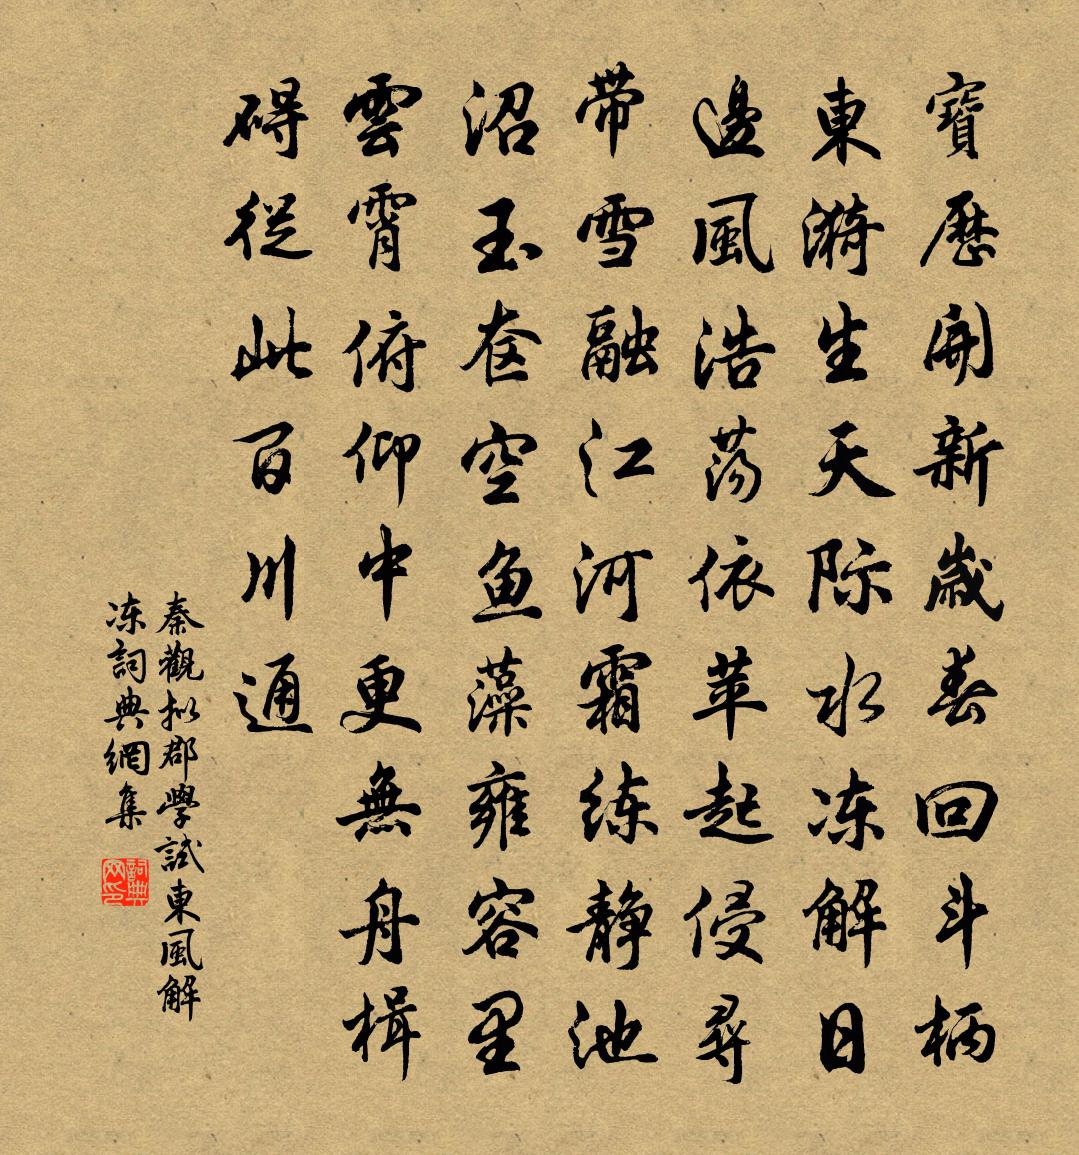 寶歷開新歲春回斗柄
東漪生天际水冻解日
邊風浩荡依苹起侵尋
带雪融江河霜练静池
沼玉奁空鱼藻雍容里
雲霄俯仰中更無舟楫
碍從此百川通
秦觀拟郡學試東風解
冻詞典網集
詞典网印